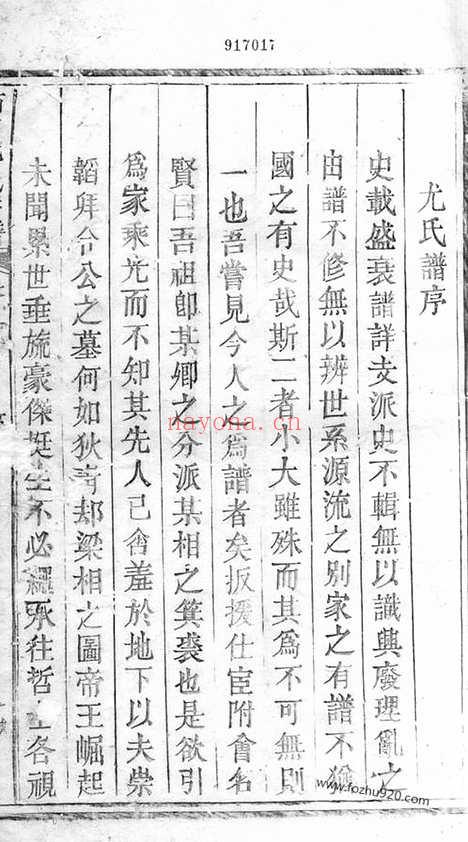 917017
尤氏譜序
史載盛衰譜詳支派史不輯無以識興廢理亂之
由譜不修無以辨世系源流之別家之有譜不猶
國之有史哉斯二者小大雖殊而其爲不可無則
一也吾嘗見今人之爲譜者矣扳援仕宦附會名
賢曰吾祖卽某卿之分派某相之箕裘也是欲引
爲家乘光而不知其先人已含羞於地下以夫崇
韜拜令公之墓何如狄青却梁相之圖帝王崛起
未聞累世垂旒豪傑挺生不必繩承往哲各視
nayona.cn
www.fozhu920.com